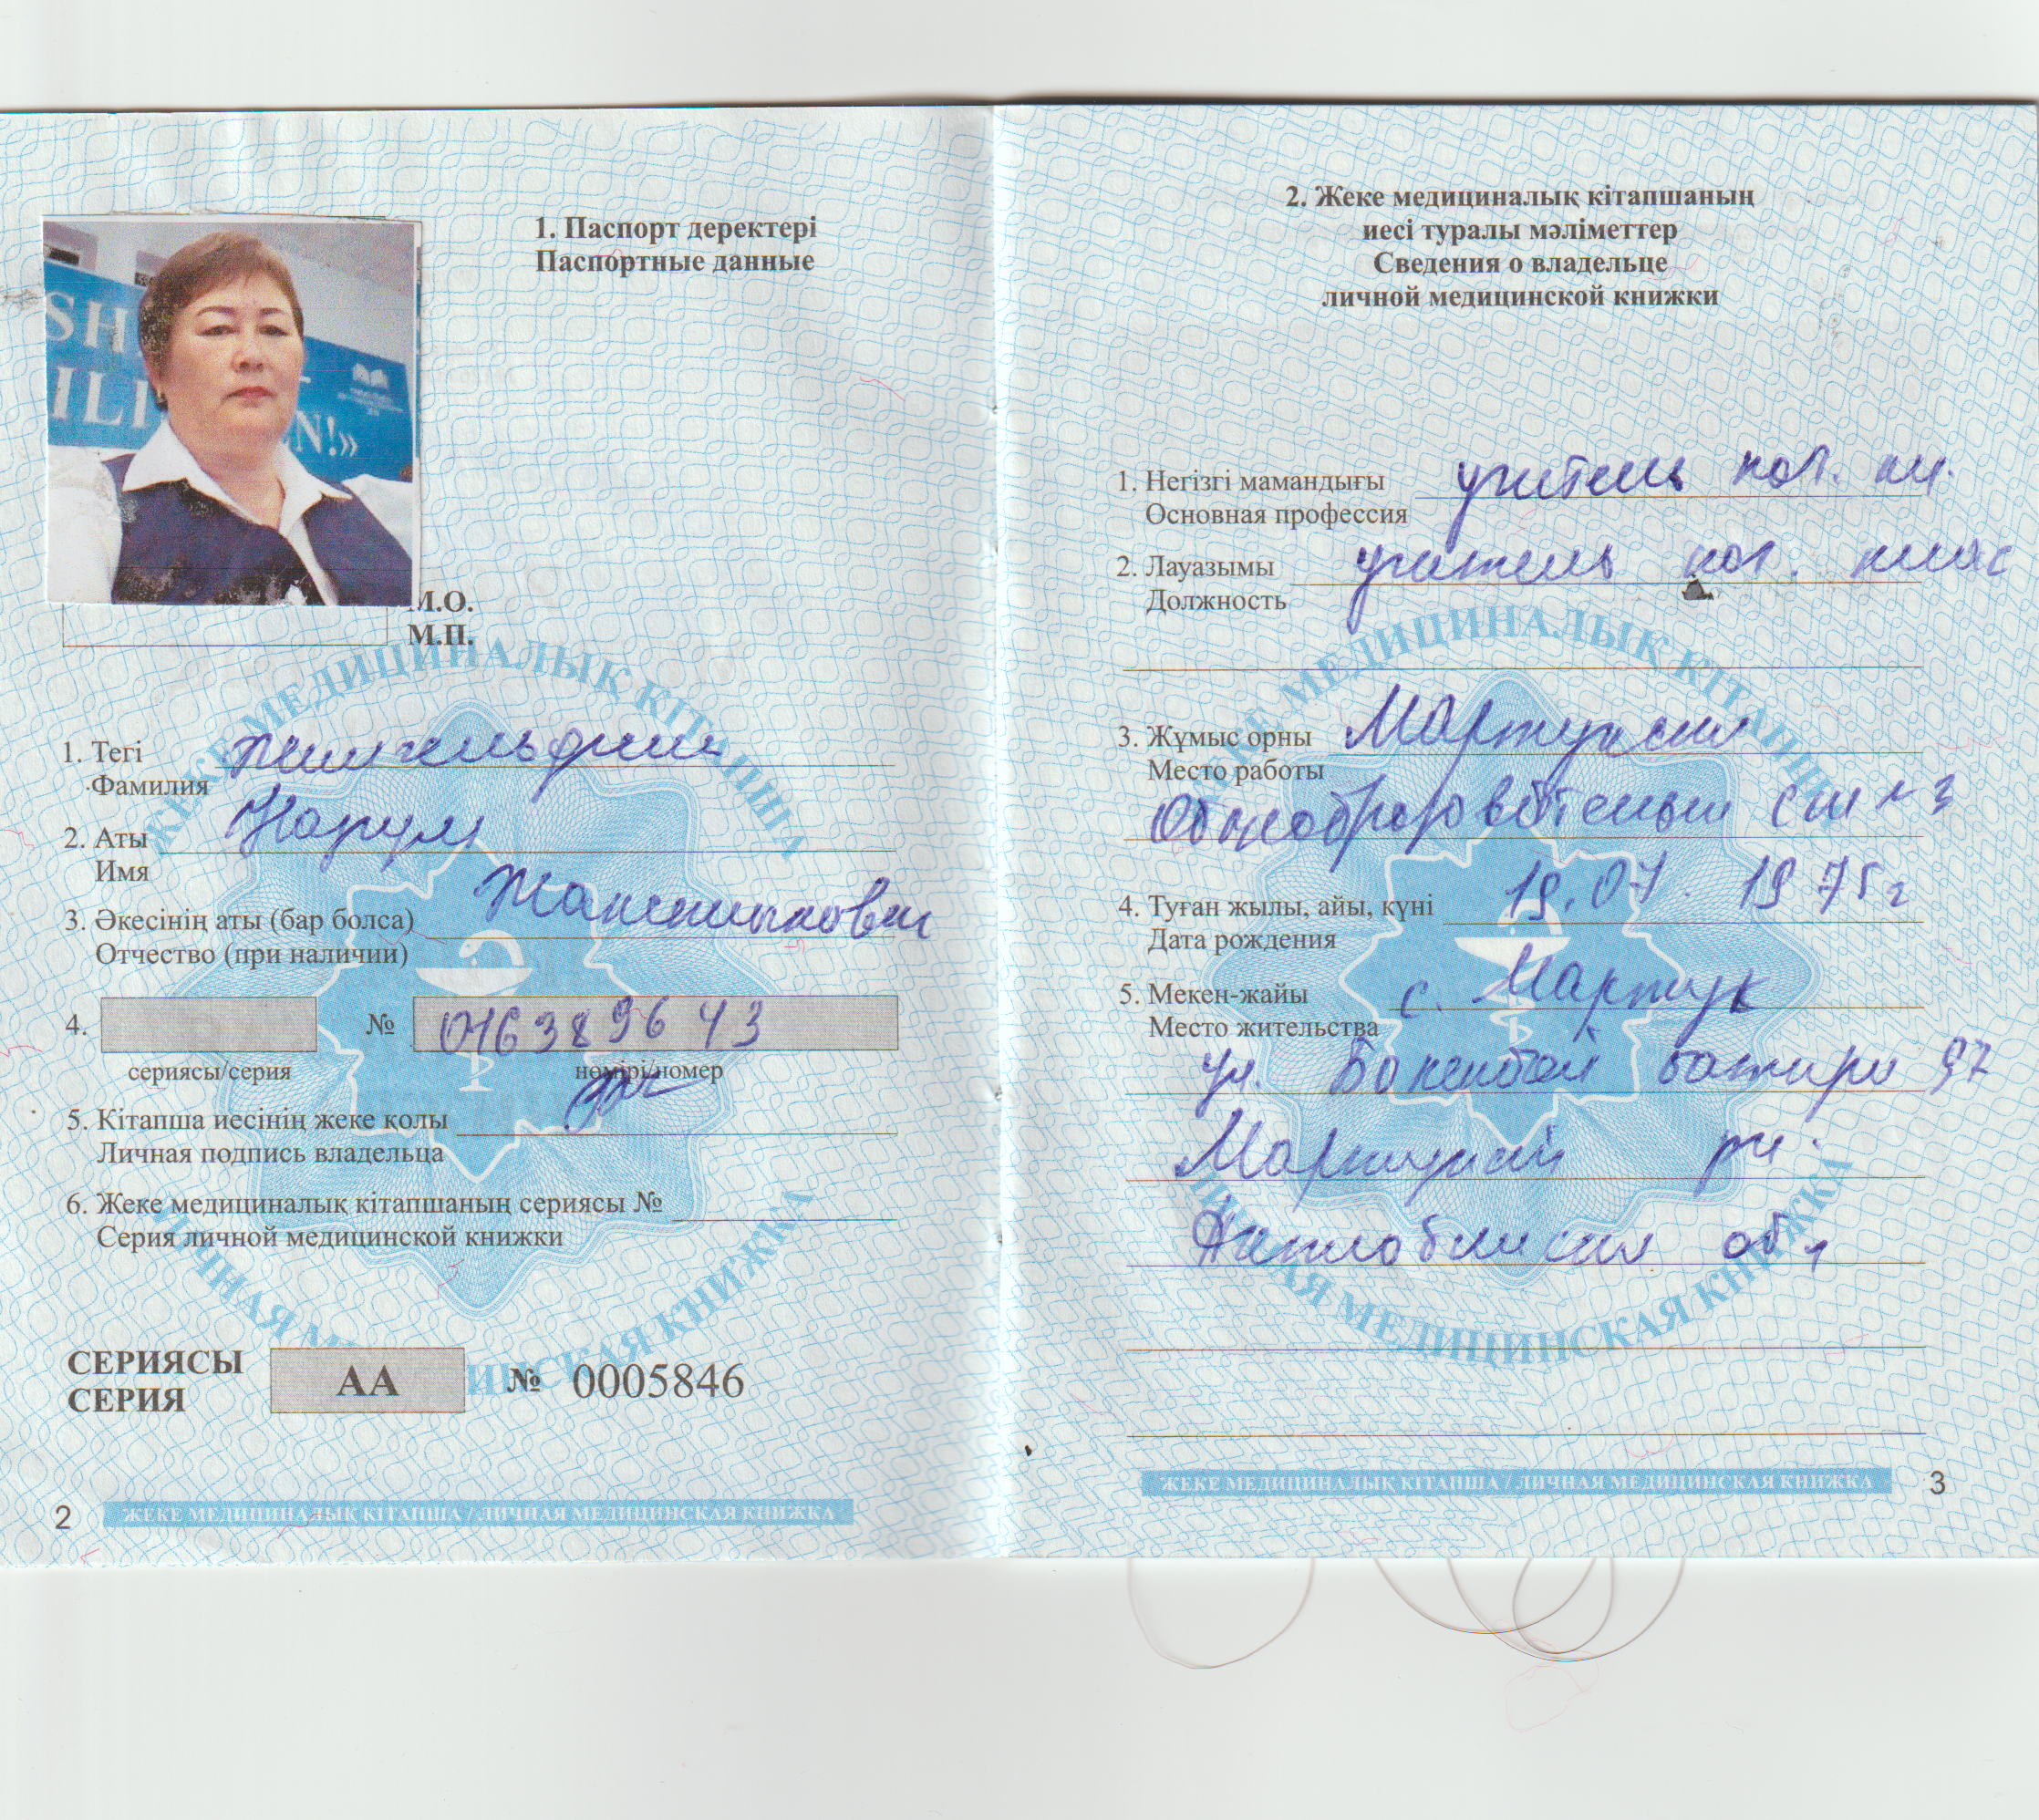 1. Паспорт деректері
Паспортные данные
SH
ILI EN!»
М.О.
М.П.
ЖЕКЕ МЕДИЦИНАЛЫҚ КІТАПША
1. Тегі
Фамилия
2. Аты
Имя
3. Әкесінің аты (бар болса)
Отчество (при наличии)
4. №
сериясы/серия нөмірі/номер
5. Кітапша иесінің жеке қолы
Личная подпись владельца
6. Жеке медициналық кітапшаның сериясы №
Серия личной медицинской книжки
ЛИЧНАЯ МЕДИЦИНСКАЯ КНИЖКА
СЕРИЯСЫ
СЕРИЯ АА № 0005846
2 ЖЕКЕ МЕДИЦИНАЛЫҚ КІТАПША / ЛИЧНАЯ МЕДИЦИНСКАЯ КНИЖКА
2. Жеке медициналық кітапшаның
иесі туралы мәліметтер
Сведения о владельце
личной медицинской книжки
1. Негізгі мамандығы учитель нач. кл.
Основная профессия
2. Лауазымы учитель нач. клас
Должность
ЖЕКЕ МЕДИЦИНАЛЫҚ КІТАПША
3. Жұмыс орны
Место работы
4. Туған жылы, айы, күні 19.07.1975 г
Дата рождения
5. Мекен-жайы с. Мартук
Место жительства
ул. батыра 97
обл
ЛИЧНАЯ МЕДИЦИНСКАЯ КНИЖКА
ЖЕКЕ МЕДИЦИНАЛЫҚ КІТАПША / ЛИЧНАЯ МЕДИЦИНСКАЯ КНИЖКА 3